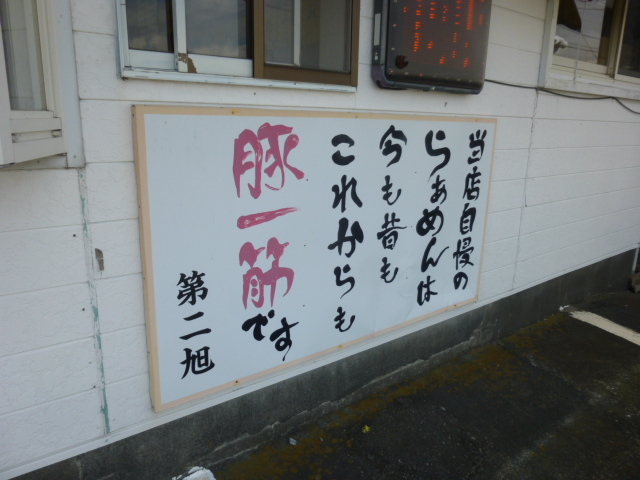 当店自慢の
らぁめんは
今も昔も
これからも
豚一筋です
第二旭